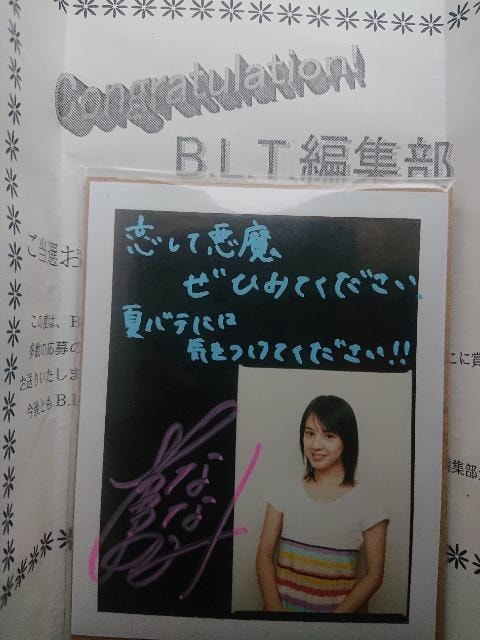 Congratulation!
B.L.T.編集部
恋して悪魔、
ぜひみてください、
夏バテには
気をつけてください!!
ご当選お
この度は、B
多数の応募の
お送りいたしま
今後とも B.L
こに賞
編集部
なな